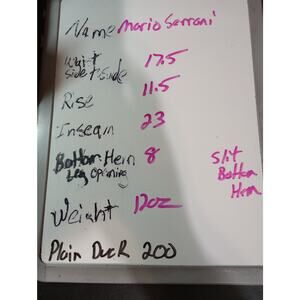 Name Mario Serrani
Waist side to side 17.5
Rise 11.5
Inseam 23
Bottom Hem 8
Leg Opening
Slit Bottom Hem
Weight 12oz
Plain Duck 200